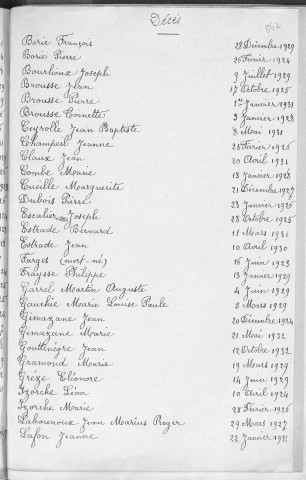 Décès
Borie François 28 Décembre 1929
Borie Pierre 26 Février 1924
Bourlioux Joseph 9 Juillet 1929
Brousse Jean 17 Octobre 1925
Brousse Pierre 1er Janvier 1931
Brousse Toinette 3 Janvier 1928
Ceyrolle Jean Baptiste 8 Mai 1931
Champeil Jeanne 25 Février 1926
Claux Jean 20 Avril 1931
Combe Marie 13 Janvier 1926
Cueille Marguerite 21 Décembre 1927
Dubois Pierre 23 Janvier 1926
Escalier Joseph 28 Octobre 1925
Estrade Bernard 11 Mars 1931
Estrade Jean 10 Avril 1930
Farges (mort-né) 16 Juin 1923
Fraysse Philippe 13 Janvier 1929
Garrel Martin Auguste 4 Juin 1929
Gauchie Marie Louise Paule 5 Mars 1929
Gimazane Jean 20 Décembre 1924
Gimazane Marie 21 Mai 1932
Gouttenègre Jean 12 Octobre 1932
Gramond Marie 19 Mars 1929
Grèze Eléonore 14 Juin 1929
Izorche Léon 10 Avril 1924
Izorche Marie 28 Février 1926
Labounoux Jean Marius Roger 29 Mars 1927
Lafon Jeanne 22 Janvier 1931